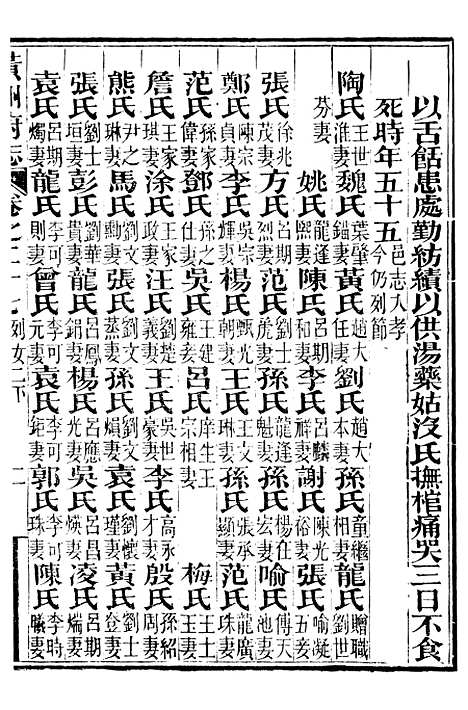 以舌餂患處勤紡績以供湯藥姑沒氏撫棺痛哭三日不食
死時年五十五邑志入孝今仍列節
陶氏王世淮妻 魏氏葉肇錨妻 黃氏趙大任妻 劉氏趙大本妻 孫氏童繼相妻 龍氏贈職劉世
芬妻 姚氏龍逢熙妻 陳氏呂期和妻 李氏呂麟祥妻 謝氏陳光裕妻 張氏喻凝五妾
張氏徐兆茂妻 方氏呂期烈妻 孫氏范老虎妻 孫氏龍逢魁妻 孫氏楊仕宏妻 喻氏傅天池妻
鄭氏陳宗貞妻 李氏孫宗姆妻 楊氏甄光朝妻 王氏陳玉環妻 孫氏張承顯妻 范氏龍廣珠妻
范氏王家偉妻 鄧氏孫之仕妻 吳氏王心維妾 呂氏庠生王宗相妻 梅氏王士元妻
詹氏王家珙妻 涂氏王家政妻 汪氏孫漢義妻 王氏吳世豪妻 李氏高永才妻 殷氏孫紹周妻
熊氏尹之琳妻 馬氏劉文勳妻 張氏劉文蒸妻 孫氏劉文熉妻 袁氏劉懷瑾妻 黃氏劉士登妻
張氏劉士垣妻 彭氏劉華貴妻 龍氏呂鳳鋗妻 楊氏呂應光妻 吳氏呂昌煐妻 凌氏呂期煓妻
袁氏呂期燭妻 龍氏李可則妻 曾氏李可元妻 袁氏李可鉅妻 郭氏李可珠妻 陳氏李時曦妻
黃州府志 卷之二十七 列女 二下 二